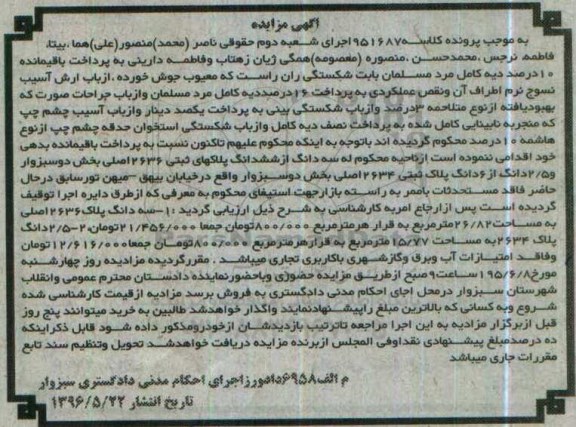 آگهی مزایده
به موجب پرونده کلاسه ۹۵۱۶۸۷اجرای شعبه دوم حقوقی ناصر (محمد)منصور(علی)هما ،بیتا،
فاطمه، نرجس ،محمدحسن ،منصوره (معصومه)همگی ژیان زهتاب وفاطمه دارینی به پرداخت باقیمانده
۱۰درصد دیه کامل مرد مسلمان بابت شکستگی ران راست که معیوب جوش خورده ،ازباب ارش آسیب
نسوج نرم اطراف آن ونقص عملکردی به پرداخت ۱۶درصددیه کامل مرد مسلمان وازباب جراحات صورت که
بهبودیافته ازنوع متلاحمه ۳درصد وازباب شکستگی بینی به پرداخت یکصد دینار وازباب آسیب چشم چپ
که منجربه نابینایی کامل شده به پرداخت نصف دیه کامل وازباب شکستگی استخوان حدقه چشم چپ ازنوع
هاشمه ۱۰درصد محکوم گردیده اند باتوجه به اینکه محکوم علیهم تاکنون نسبت به پرداخت باقیمانده بدهی
خود اقدامی ننموده است ازناحیه محکوم له سه دانگ ازششدانگ پلاکهای ثبتی ۲۶۳۶اصلی بخش دوسبزوار
و۲/۵دانگ از۶دانگ پلاک ثبتی ۲۶۳۴اصلی بخش دوسبزوار واقع درخیابان بیهق –میهن تورسابق درحال
حاضر فاقد مستحدثات بامعر به راسته بازارجهت استیفای محکوم به معرفی که ازطرق دایره اجرا توقیف
گردیده است پس ازارجاع امربه کارشناسی به شرح ذیل ارزیابی گردید :۱-سه دانگ پلاک۲۶۳۶اصلی
به مساحت۲۶/۸۲مترمربع به قرار هرمترمربع ۸۰۰/۰۰۰تومان جمعا ۲۱/۴۵۶/۰۰۰تومان.۲-۲/۵دانگ
پلاک ۲۶۳۴به مساحت ۱۵/۷۷مترمربع به قرارهرمترمربع ۸۰۰/۰۰۰تومان جمعا۱۲/۶۱۶/۰۰۰تومان
وفاقد امتیازات آب وبرق وگازشهری باکاربری تجاری میباشد . مقررگردیده مزایده روز چهارشنبه
مورخ۱۹۵/۶/۸ساعت۹صبح ازطریق مزایده حضوری وباحضورنماینده دادستان محترم عمومی وانقلاب
شهرستان سبزوار درمحل اجای احکام مدنی دادگستری به فروش برسد مزادیه ازقیمت کارشناسی شده
شروع وبه کسانی که بالاترین مبلغ راپیشنهادنمایند واگذار خواهدشد طالبین به خرید میتوانند پنج روز
قبل ازبرگزار مزادیه به این اجرا مراجعه تاترتیب بازدیدشان ازخودرومذکور داده شود قابل ذکراینکه
ده درصدمبلغ پیشنهادی نقداوفی المجلس ازبرنده مزایده دریافت خواهدشد تحویل وتنظیم سند تابع
مقررات جاری میباشد
م الف۶۹۵۸دادورزاجرای احکام مدنی دادگستری سبزوار
تاریخ انتشار ۱۳۹۶/۵/۲۲